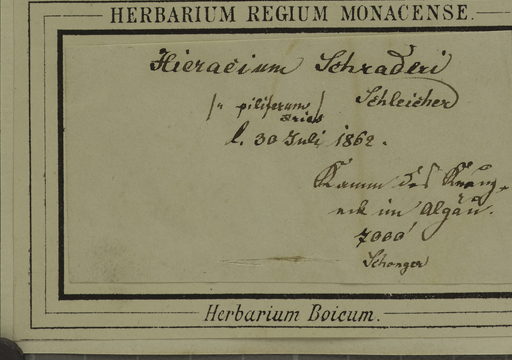 HERBARIUM REGIUM MONACENSE.
Hieracium Schraderi
Schleicher
piliferum
Fries
l. 30 Juli 1862.
Kamm des Kreuz-
eck im Algäu.
7000'
Schonger
Herbarium Boicum.